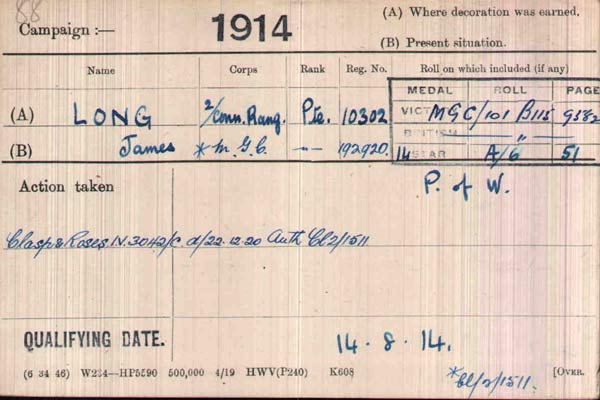 88
Campaign :— 1914 (A) Where decoration was earned.
(B) Present situation.
Name Corps Rank Reg. No. Roll on which included (if any)
MEDAL ROLL PAGE
(A) LONG 2/Conn. Rang. Pte. 10302 VICT MGC/101 B115 9382
BRITISH "
(B) James * M.G.C. —"— 192920. 14 STAR A/6 51
Action taken P. of W.
Clasp & Roses IV. 3042/C. d/22.12.20 Auth Cl2/1511
QUALIFYING DATE. 14.8.14.
(6 34 46) W234—HP5590 500,000 4/19 HWV(P240) K608 *Cl/2/1511. [OVER.